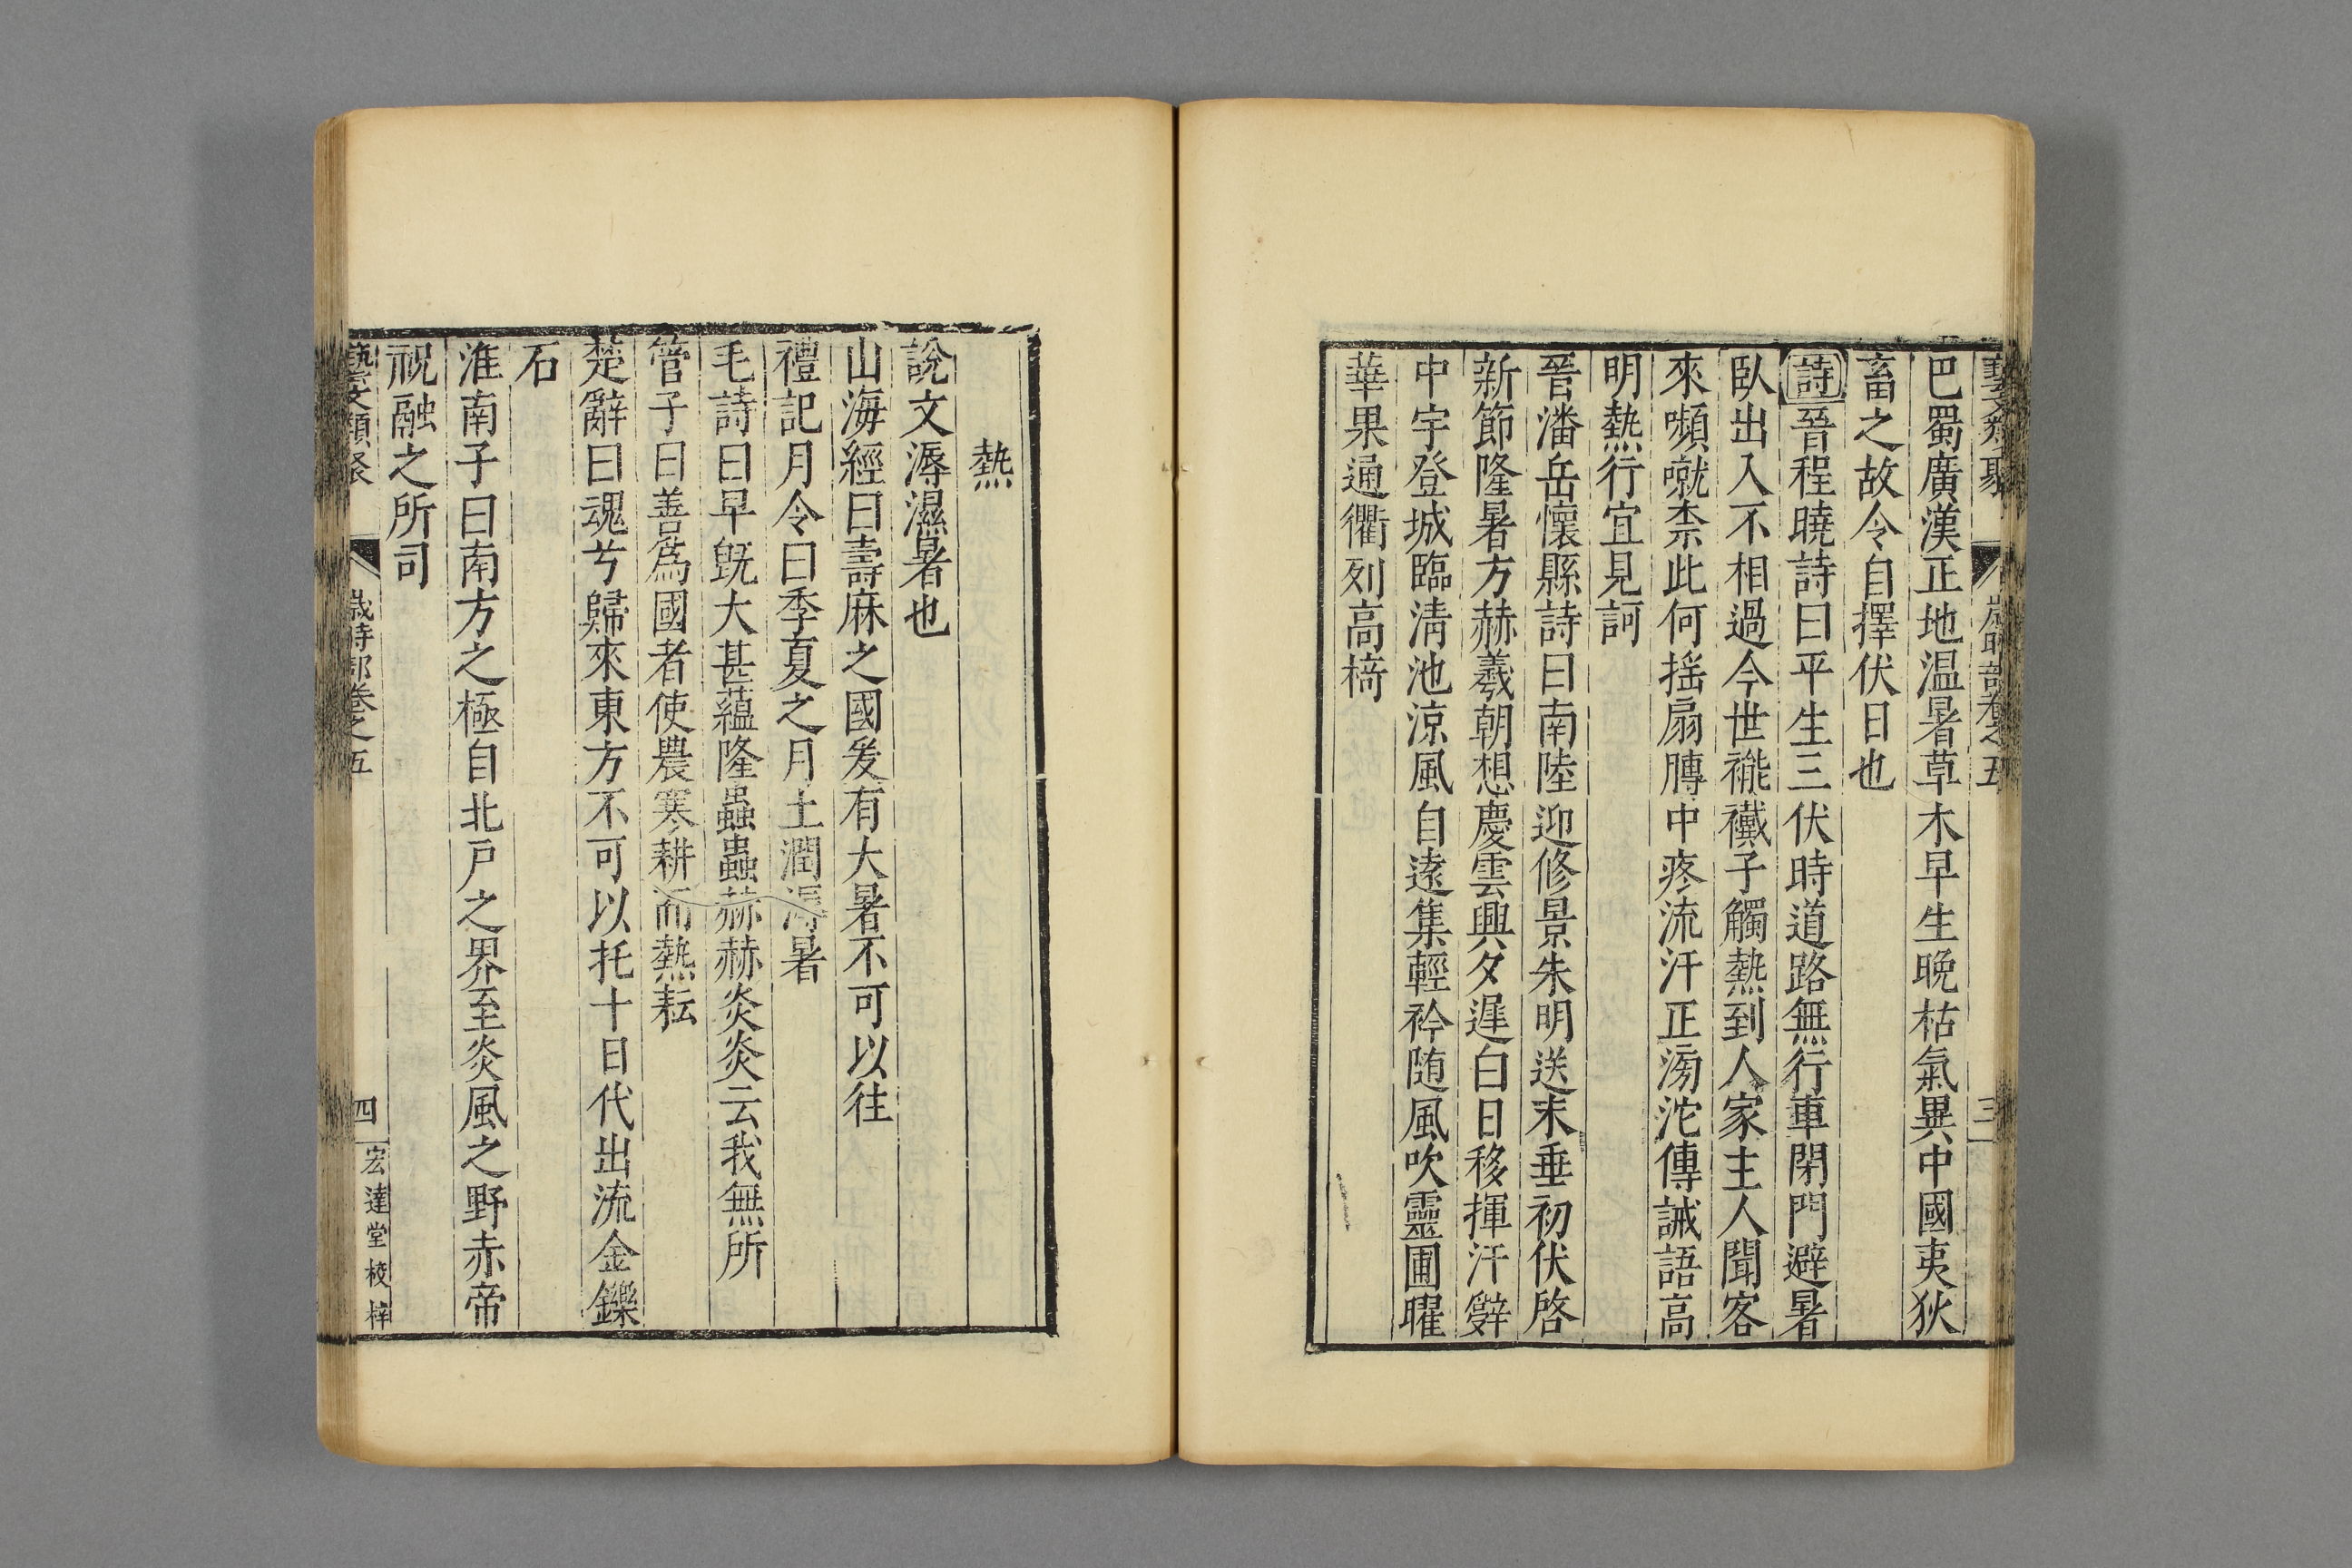 藝文類聚　歲時部卷之五　三
巴蜀廣漢正地温暑草木早生晚枯氣異中國夷狄
畜之故令自擇伏日也
詩晉程曉詩曰平生三伏時道路無行車閉門避暑
臥出入不相過今世褦襶子觸熱到人家主人聞客
來嚬蹴柰此何揺扇膊中疼流汗正滂沱傳誡語高
明熱行宜見訶
晉潘岳懷縣詩曰南陸迎修景朱明送末垂初伏啓
新節隆暑方赫羲朝想慶雲興夕遲白日移揮汗辭
中宇登城臨清池涼風自遠集輕衿随風吹靈圃曜
華果通衢列高椅
熱
說文溽濕暑也
山海經曰壽麻之國爰有大暑不可以往
禮記月令曰季夏之月土潤溽暑
毛詩曰旱旣大甚蘊隆蟲蟲赫赫炎炎云我無所
管子曰善爲國者使農寒耕而熱耘
楚辭曰魂兮歸來東方不可以托十日代出流金鑠
石
淮南子曰南方之極自北戸之界至炎風之野赤帝
祝融之所司
藝文類聚　歲時部卷之五　四　宏達堂校梓